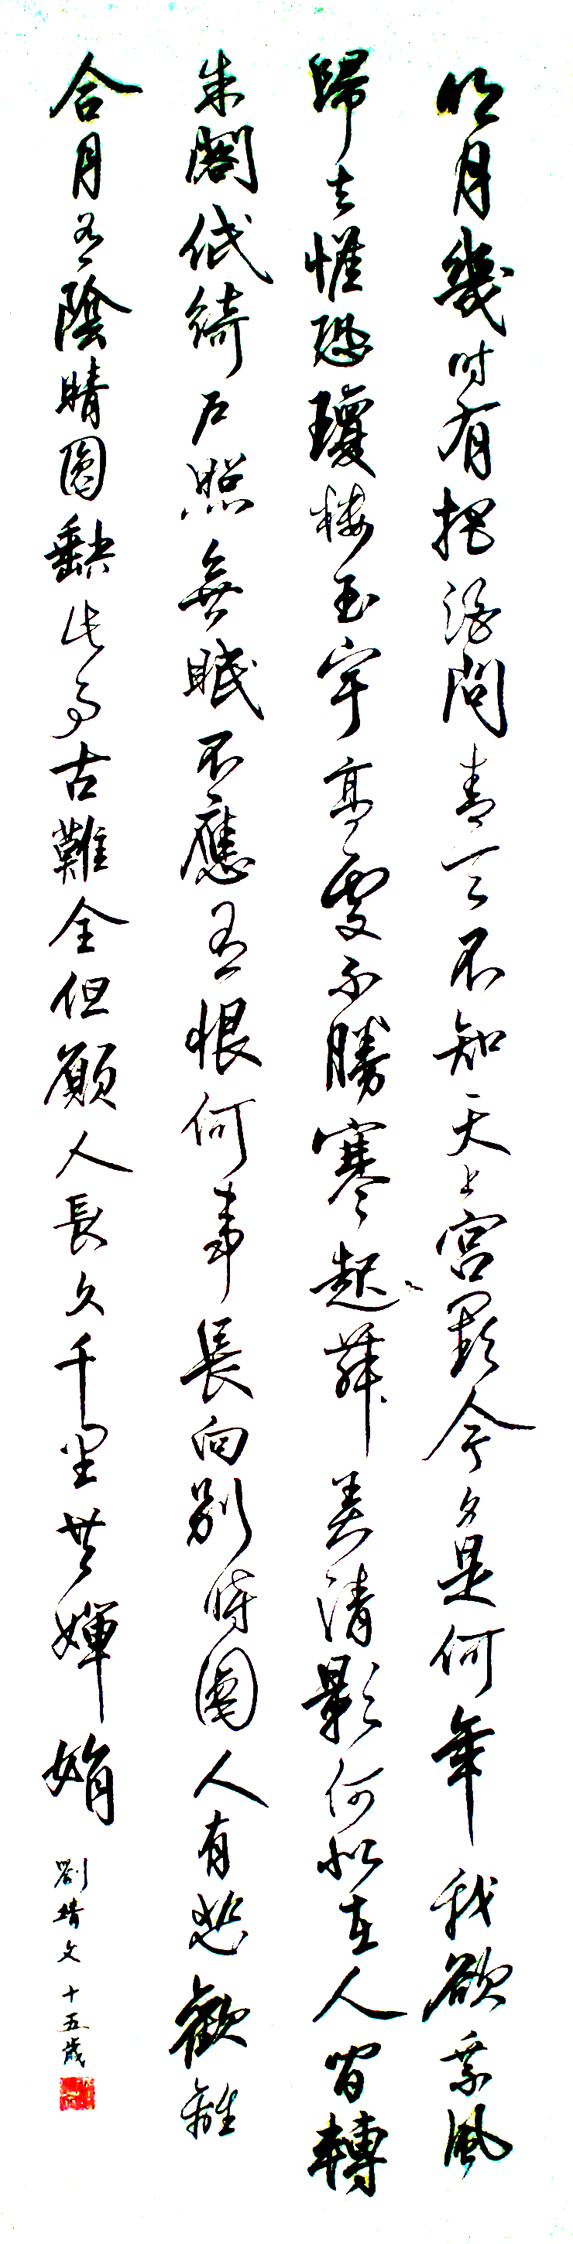 明月幾時有把酒問青天不知天上宮闕今夕是何年我欲乘風
歸去惟恐瓊樓玉宇高處不勝寒起舞弄清影何似在人間轉
朱閣低綺戶照無眠不應有恨何事長向別時圓人有悲歡離
合月有陰晴圓缺此事古難全但願人長久千里共嬋娟
劉文十五歲